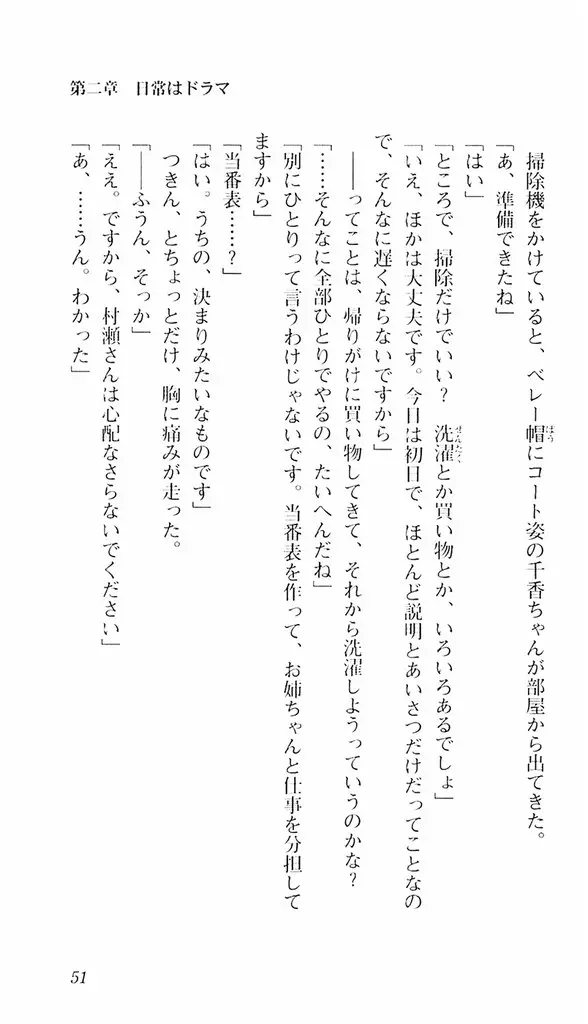 掃除機をかけていると、ベレー帽にコート姿の千香ちゃんが部屋から出てきた。
「あ、準備できたね」
「はい」
「ところで、掃除だけでいい？　洗濯とか買い物とか、いろいろあるでしょ」
「いえ、ほかは大丈夫です。今日は初日で、ほとんど説明とあいさつだけだってことなの
で、そんなに遅くならないですから」
――ってことは、帰りがけに買い物してきて、それから洗濯しようっていうのかな？
「……そんなに全部ひとりでやるの、たいへんだね」
「別にひとりって言うわけじゃないです。当番表を作って、お姉ちゃんと仕事を分担して
ますから」
「当番表……？」
「はい。うちの、決まりみたいなものです」
つきん、とちょっとだけ、胸に痛みが走った。
「――ふうん、そっか」
「ええ。ですから、村瀬さんは心配なさらないでください」
「あ、……うん。わかった」
第二章　日常はドラマ
51